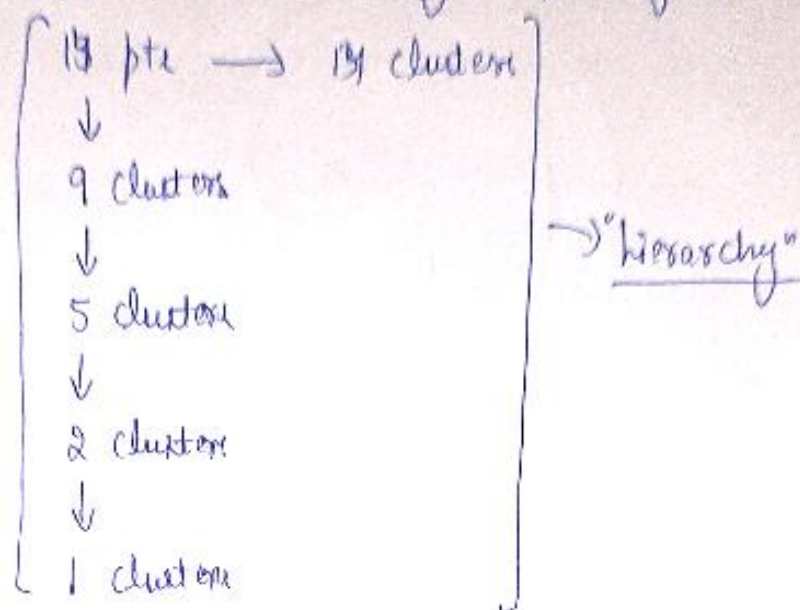 pts → clusters
↓
9 clusters
↓
5 clusters
↓
2 clusters
↓
1 clusters
→ "hierarchy"